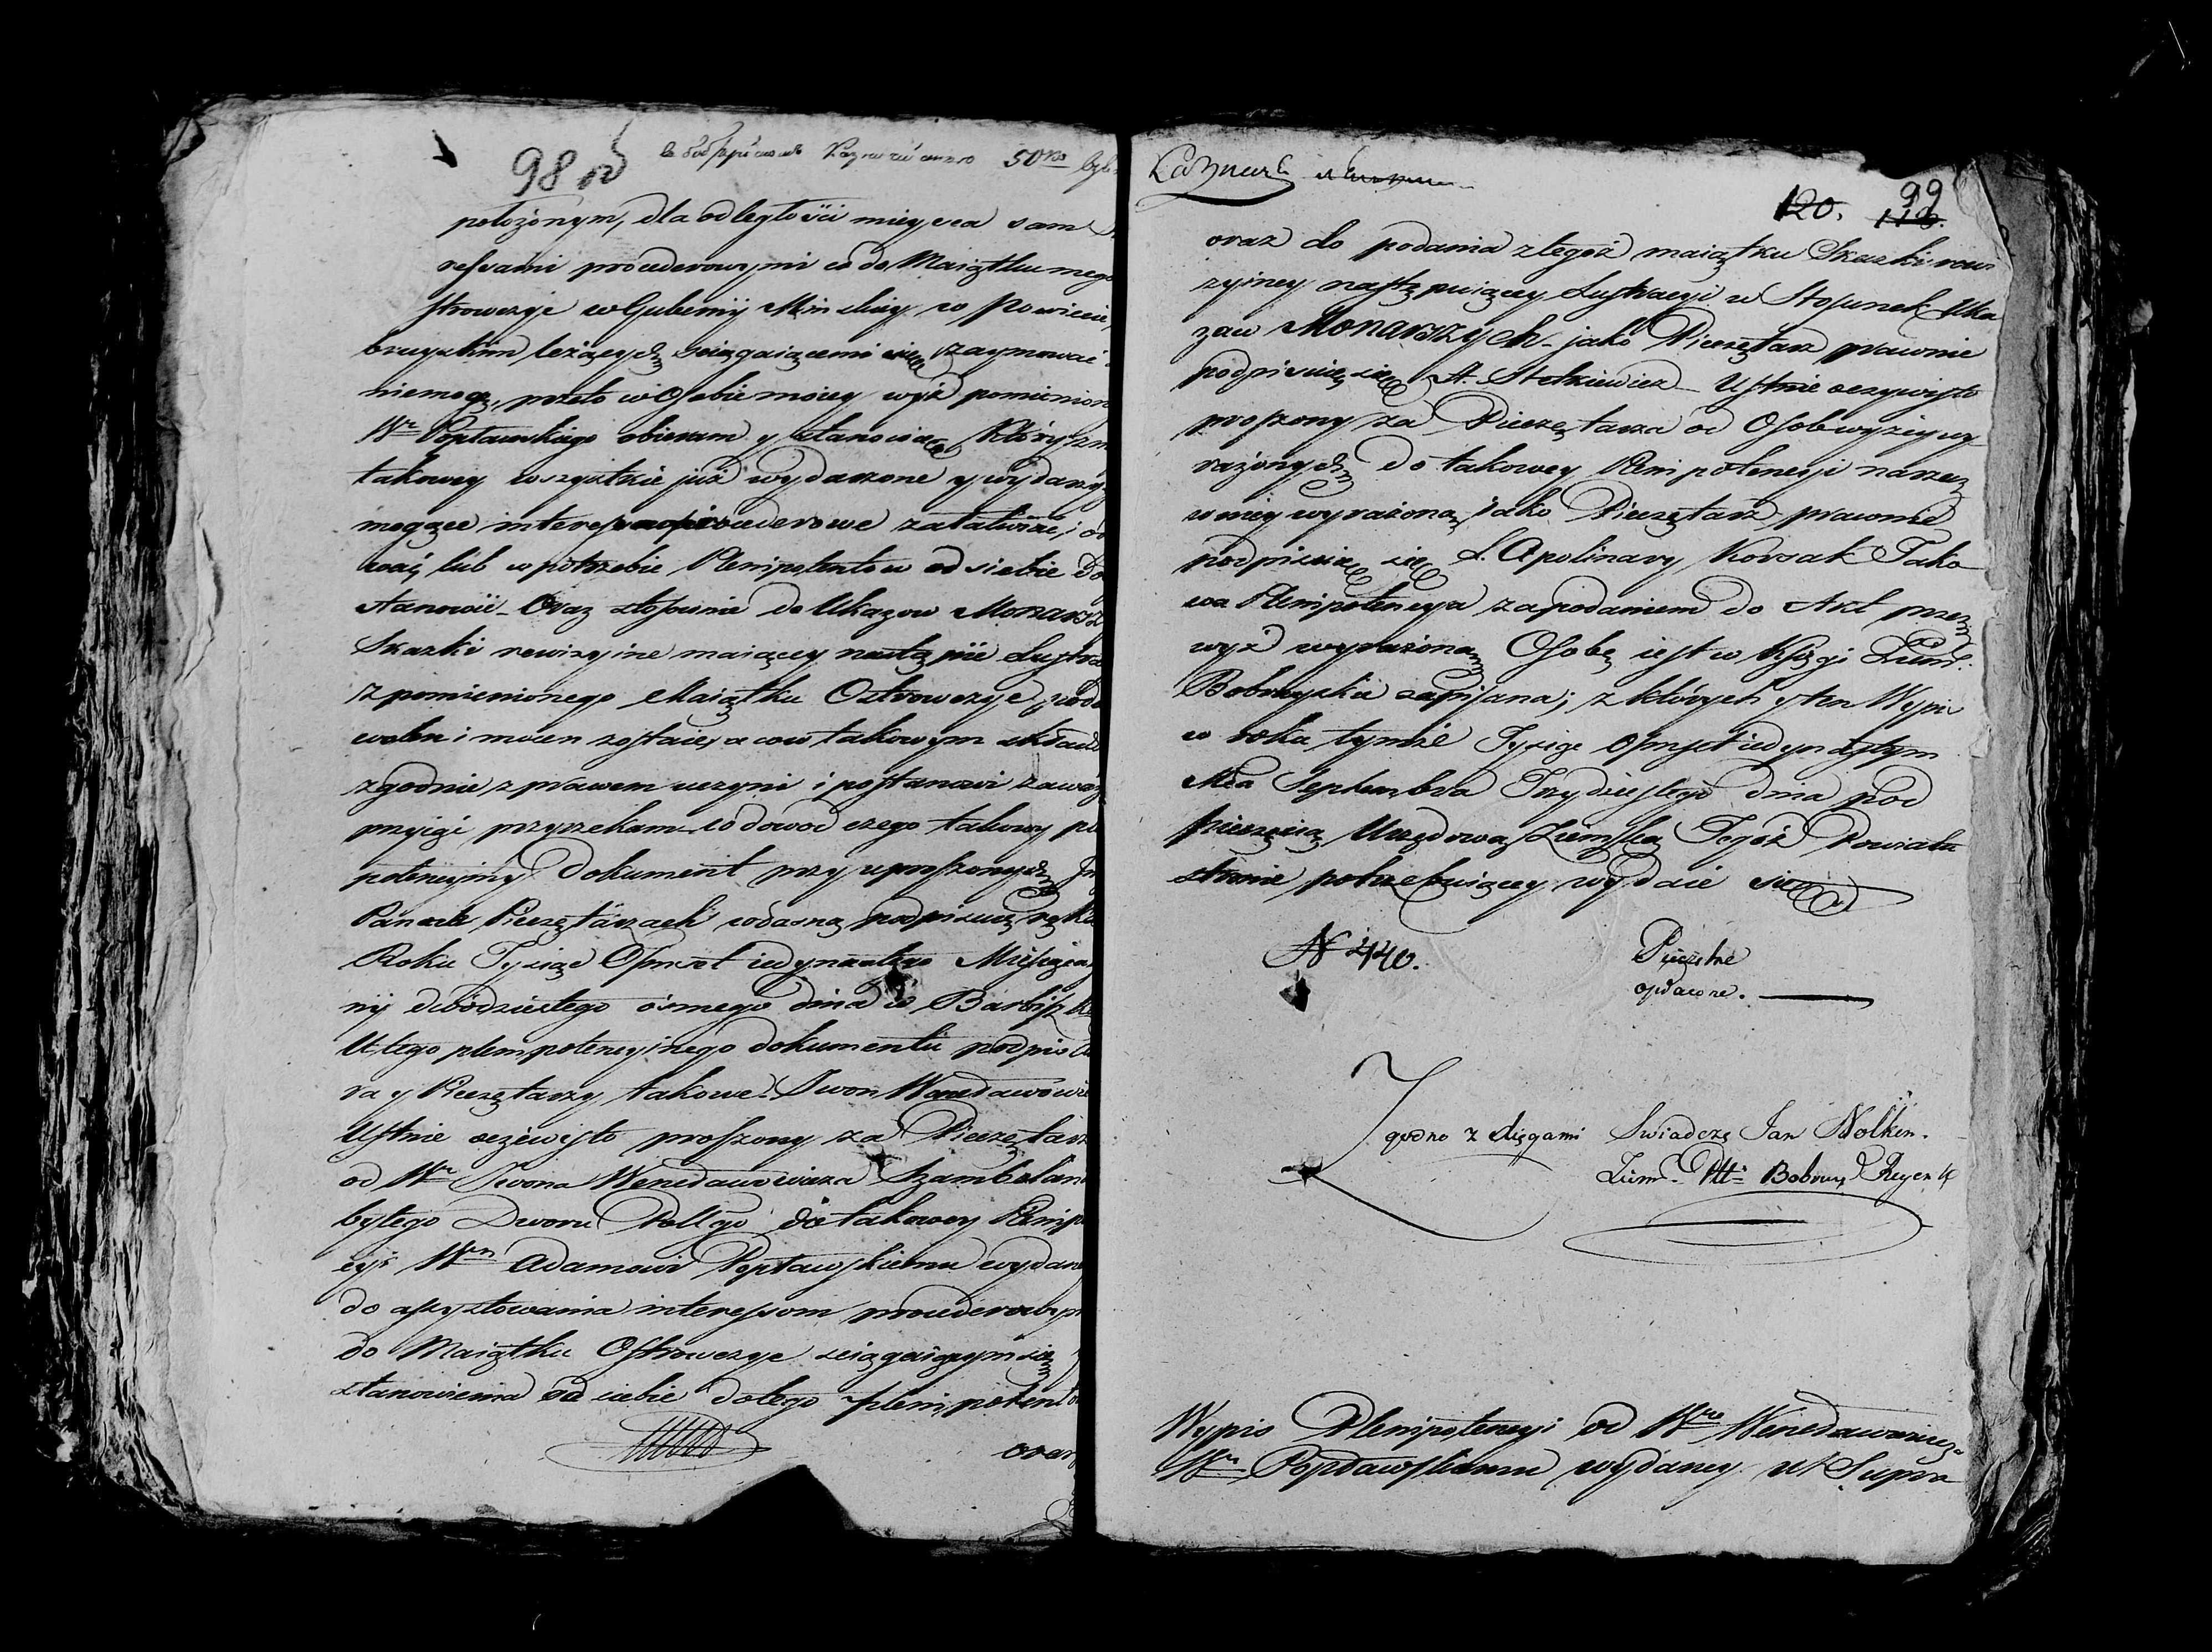 98
50
położonym, dla odległości mieysca sam
ressami procederowymi co do Maiątku mego
strowczyc w Gubernij Minskiey w Powiecie
bruyskim leżących sciągaiącemi się zaymować
niemogę, przeto w Osobie moiey wyż pomienion
Wo Popławskiego obieram y stanowię Który
takowey wszystkie już wydarzone y wydarzyć
mogące interessa procederowe załatwiać,
wać, lub w potrzebie Plenipotentow od siebie do
stanowić - Oraz stosownie do Ukazow Monarsz
Skazki rewizyine maiącey nastąpić Lustra
z pomienionego Maiątku Ostrowczyc podo
wolen i mocen zostaie, a co w takowym
zgodnie z prawem uczyni i postanowi za waż
przyiąć przyrzekam - co dowod czego takowy
potencyiny Dokument przy uproszonych
Panach Pieczętarzach własną podpisuię ręką
Roku Tysiąc Osmset iedynastego Miesiąca
nij dwódziestego ósmego dnia w
U tego plenipotencyjnego dokumentu podpis
ra y Pieczętarzy takowe. Iwon
Ustnie oczewisto proszony za Pieczętarz
od Wo Iwona Wenedawowicza Szambelan
byłego Dworu Pollgo do takowey Plenip
cyi Wmu Adamowi Popławskiemu wydan
do assystowania interessom procederowym
do Maiątku Ostrowczyc sciągaiącym się
stanowienia od siebie do tego plenipotent
oraz
120. 99
oraz do podania z tegoż maiątku Skazki rewi
zyiney nastąpuiącey Lustracyi w Stosunek Uka
zow Monarszych - jako Pieczętarz prawnie
podpisuię się A. Stetkiewicz - Ustnie oczywisto
proszony za Pieczętarza od Osob wyżey wy
rażonych do takowey Plenipotencyi na rzecz
w niey wyrażoną, Jako Pieczętarz prawnie
podpisuię się L. Apolinary Korsak Tako
wa Plenipotencya za podaniem do Akt przez
wyż wyrażoną Osobę iest w Księgi Ziem.
Bobruyskie zapisana; z których y ten Wypis
w roku tymże Tysiąc Osmset iedynastym
Mca Septembra Trzydziestego dnia pod
pieczęcią Urzędową Ziemską Tegoż Powiatu
stronie potrzebuiącey wydaie się
N 440.
opłacone.
Zgodno z Xięgami Swiadczę Jan Nolken.
Ziem. Ptt Bobruy Regent
Wypis Plenipotencyi od Wo Wenedawowicza
Wmu Popławskiemu wydaney ut Supra